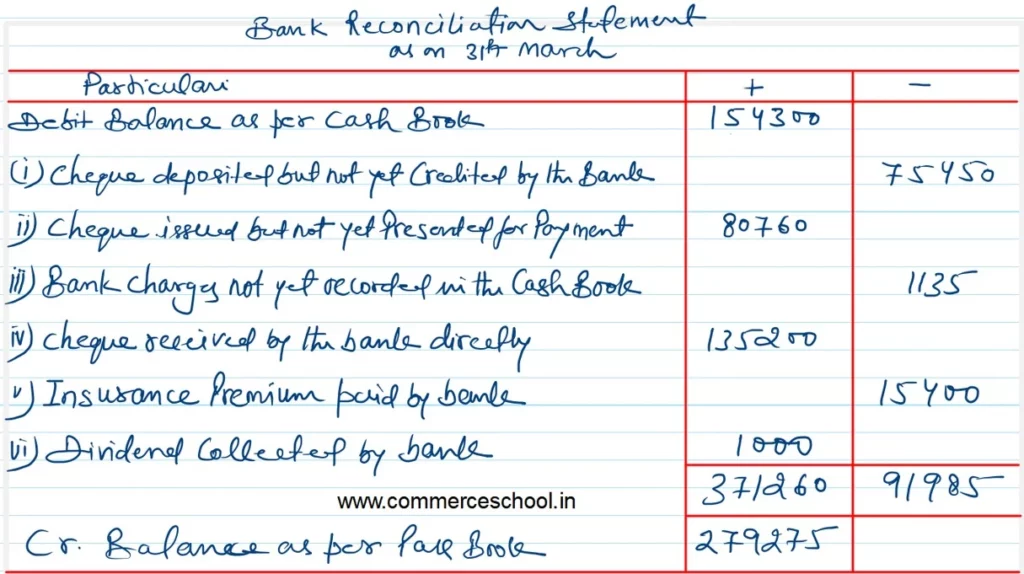 Bank Reconciliation Statement
as on 31st March
Particulars + −
Debit Balance as per Cash Book 154300
(i) Cheque deposited but not yet Credited by the Bank 75450
ii) Cheque issued but not yet Presented for Payment 80760
iii) Bank Charges not yet recorded in the Cash Book 1135
iv) Cheque received by the bank directly 135200
v) Insurance Premium paid by bank 15400
vi) Dividend Collected by bank 1000
371260 91985
www.commerceschool.in
Cr. Balance as per Pass Book 279275